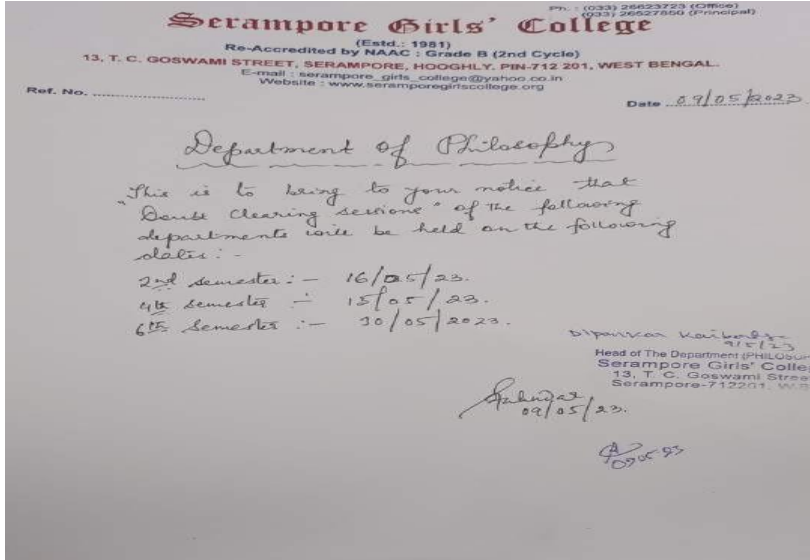 Ph. : (033) 26623723 (Office)
(033) 26627850 (Principal)
Serampore Girls' College
(Estd.: 1981)
Re-Accredited by NAAC : Grade B (2nd Cycle)
13, T. C. GOSWAMI STREET, SERAMPORE, HOOGHLY. PIN-712 201, WEST BENGAL.
E-mail : serampore_girls_college@yahoo.co.in
Website : www.seramporegirlscollege.org
Ref. No. ..............................
Date 09/05/2023
Department of Philosophy
This is to bring to your notice that
"Doubt Clearing sessions" of the following
departments will be held on the following
dates : -
2nd semester :- 16/05/23.
4th semester :- 15/05/23.
6th semester :- 30/05/2023.
Dipankar
9/5/23
Head of The Department (PHILOSO
Serampore Girls' Colle
13, T. C. Goswami Stree
Serampore-712201, W.B
09/05/23.
09.05.23